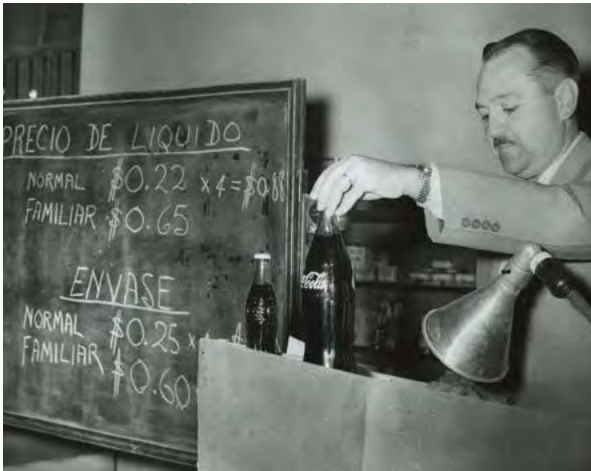 PRECIO DE LIQUIDO
NORMAL $0.22 x 4 = $0.88
FAMILIAR $0.65
ENVASE
NORMAL $0.25 x
FAMILIAR $0.60
Coca-Cola